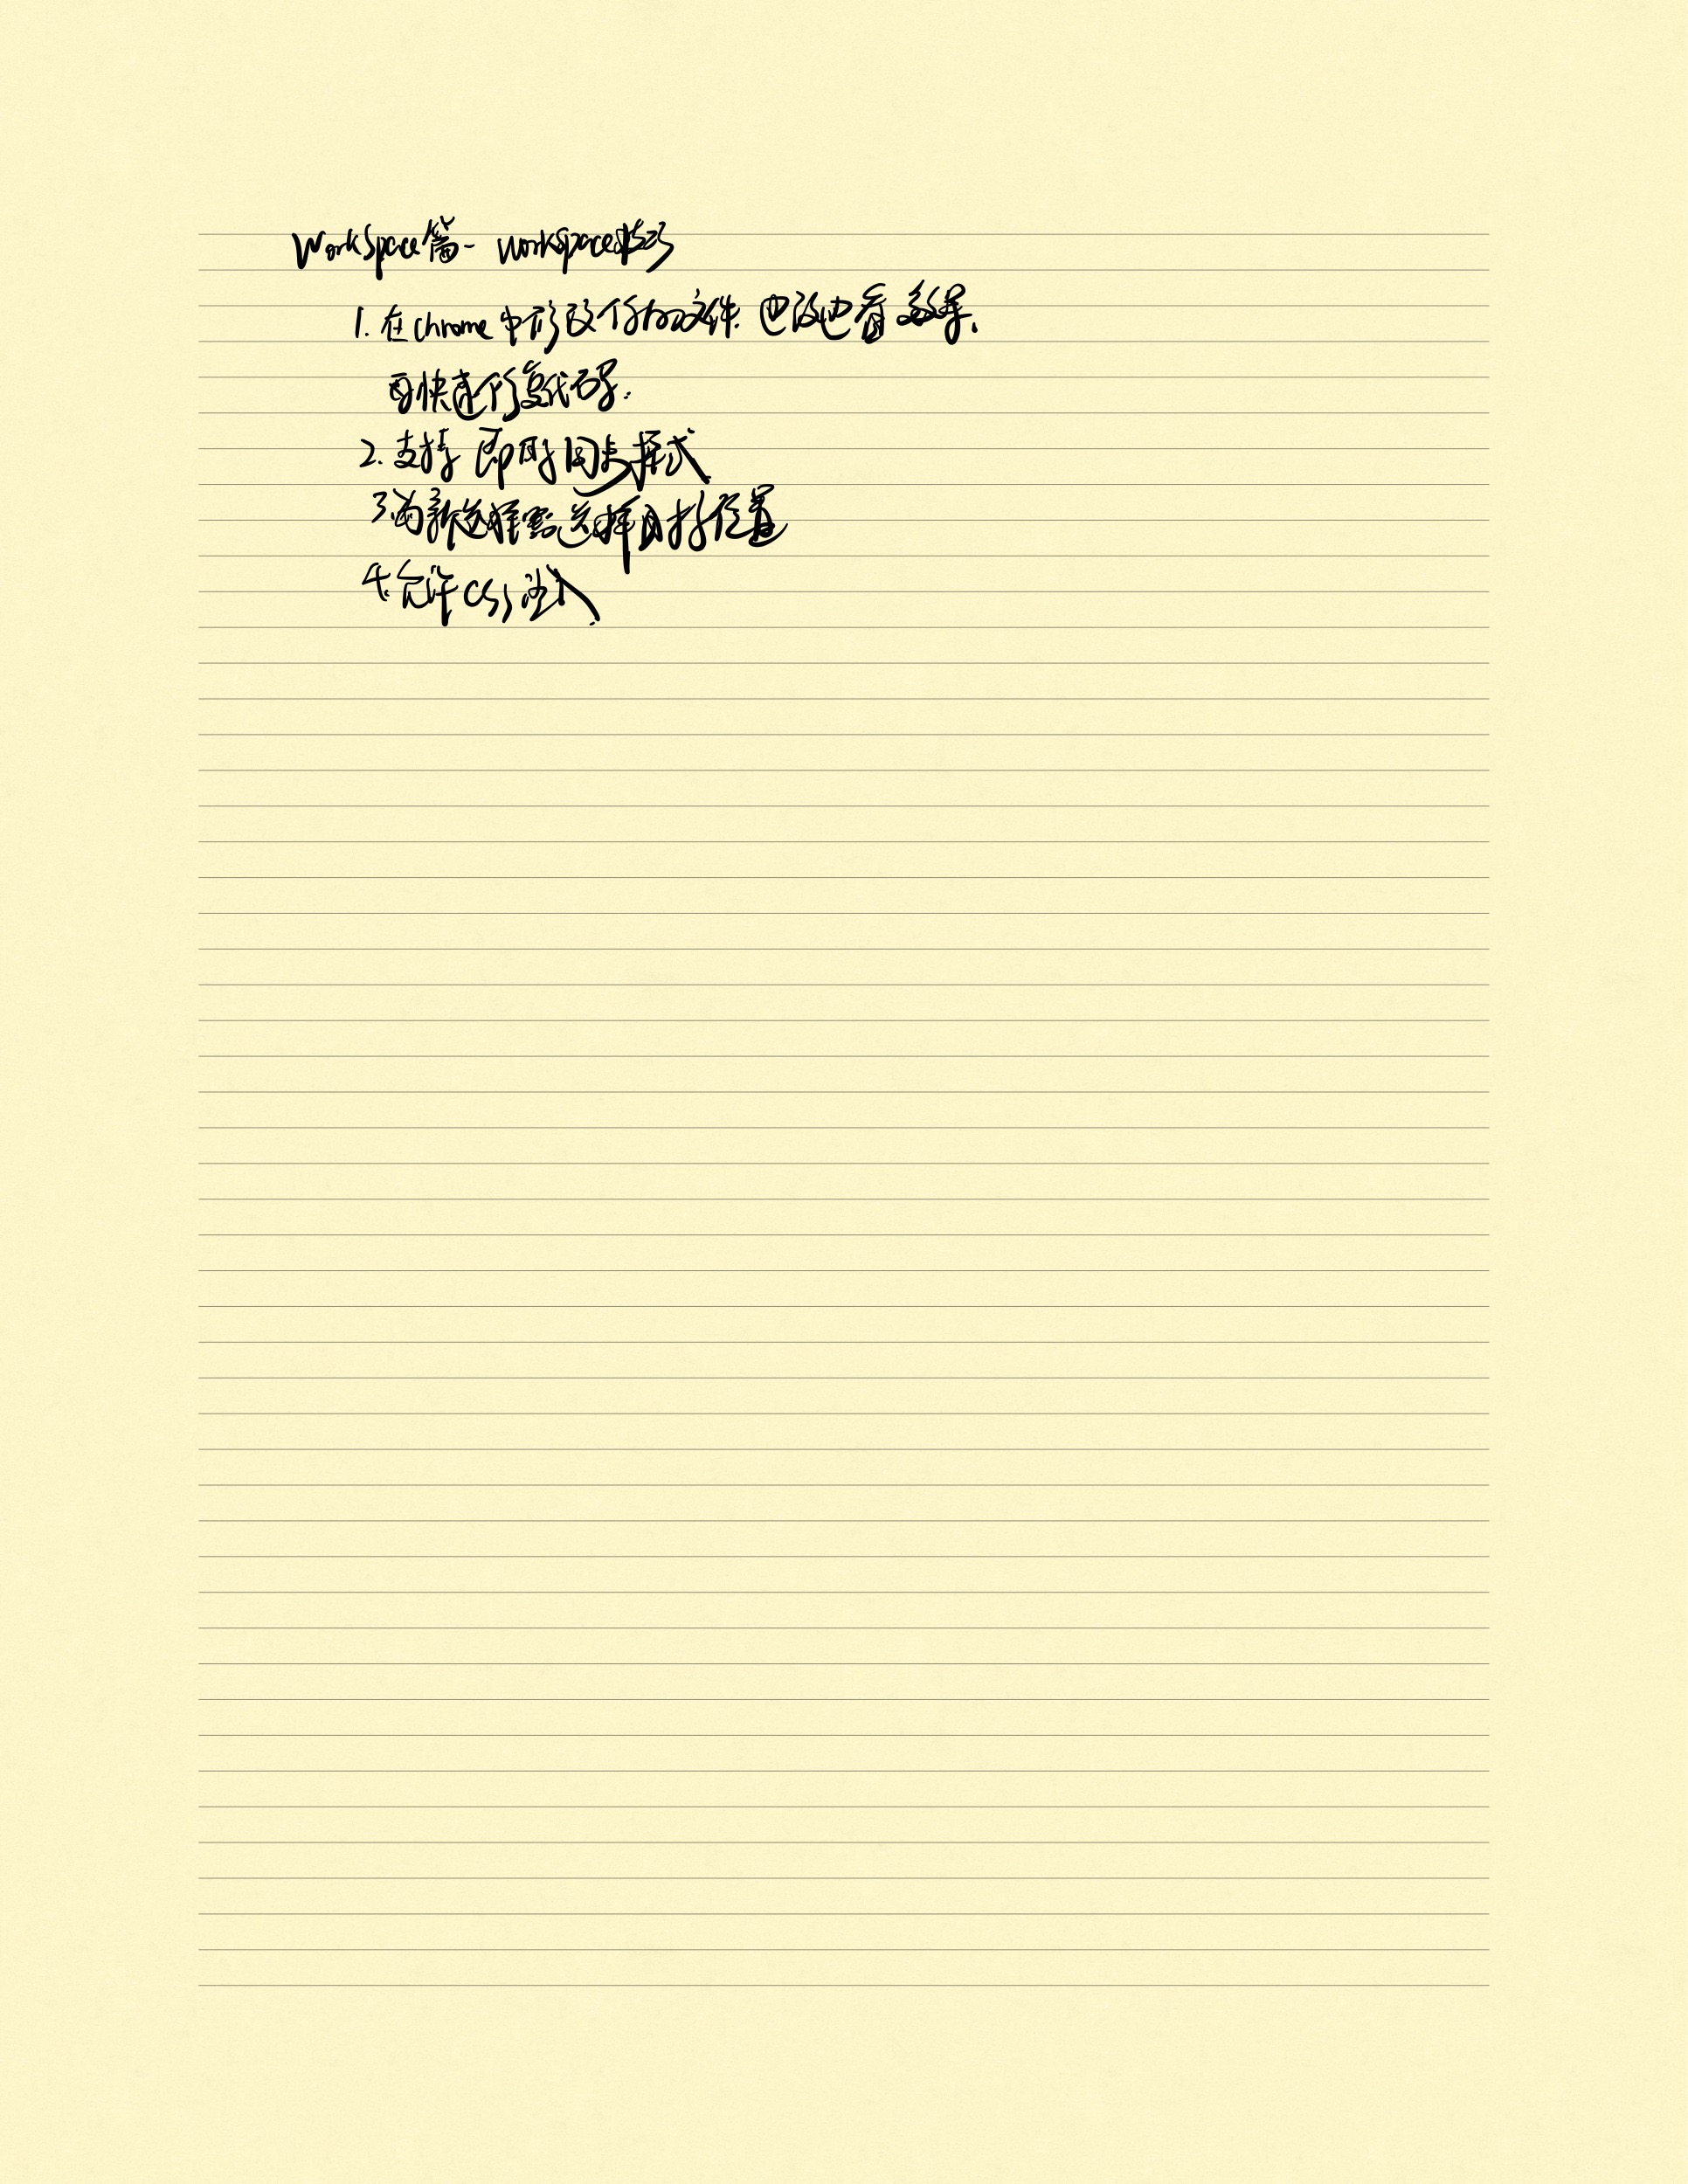 Workspace篇- workspace技巧
1. 在chrome中修改你的文件. 边改边看效果.
可快速修复代码.
2. 支持 即时同步样式
3.为新选择器选择目标位置
4.允许CSS注入